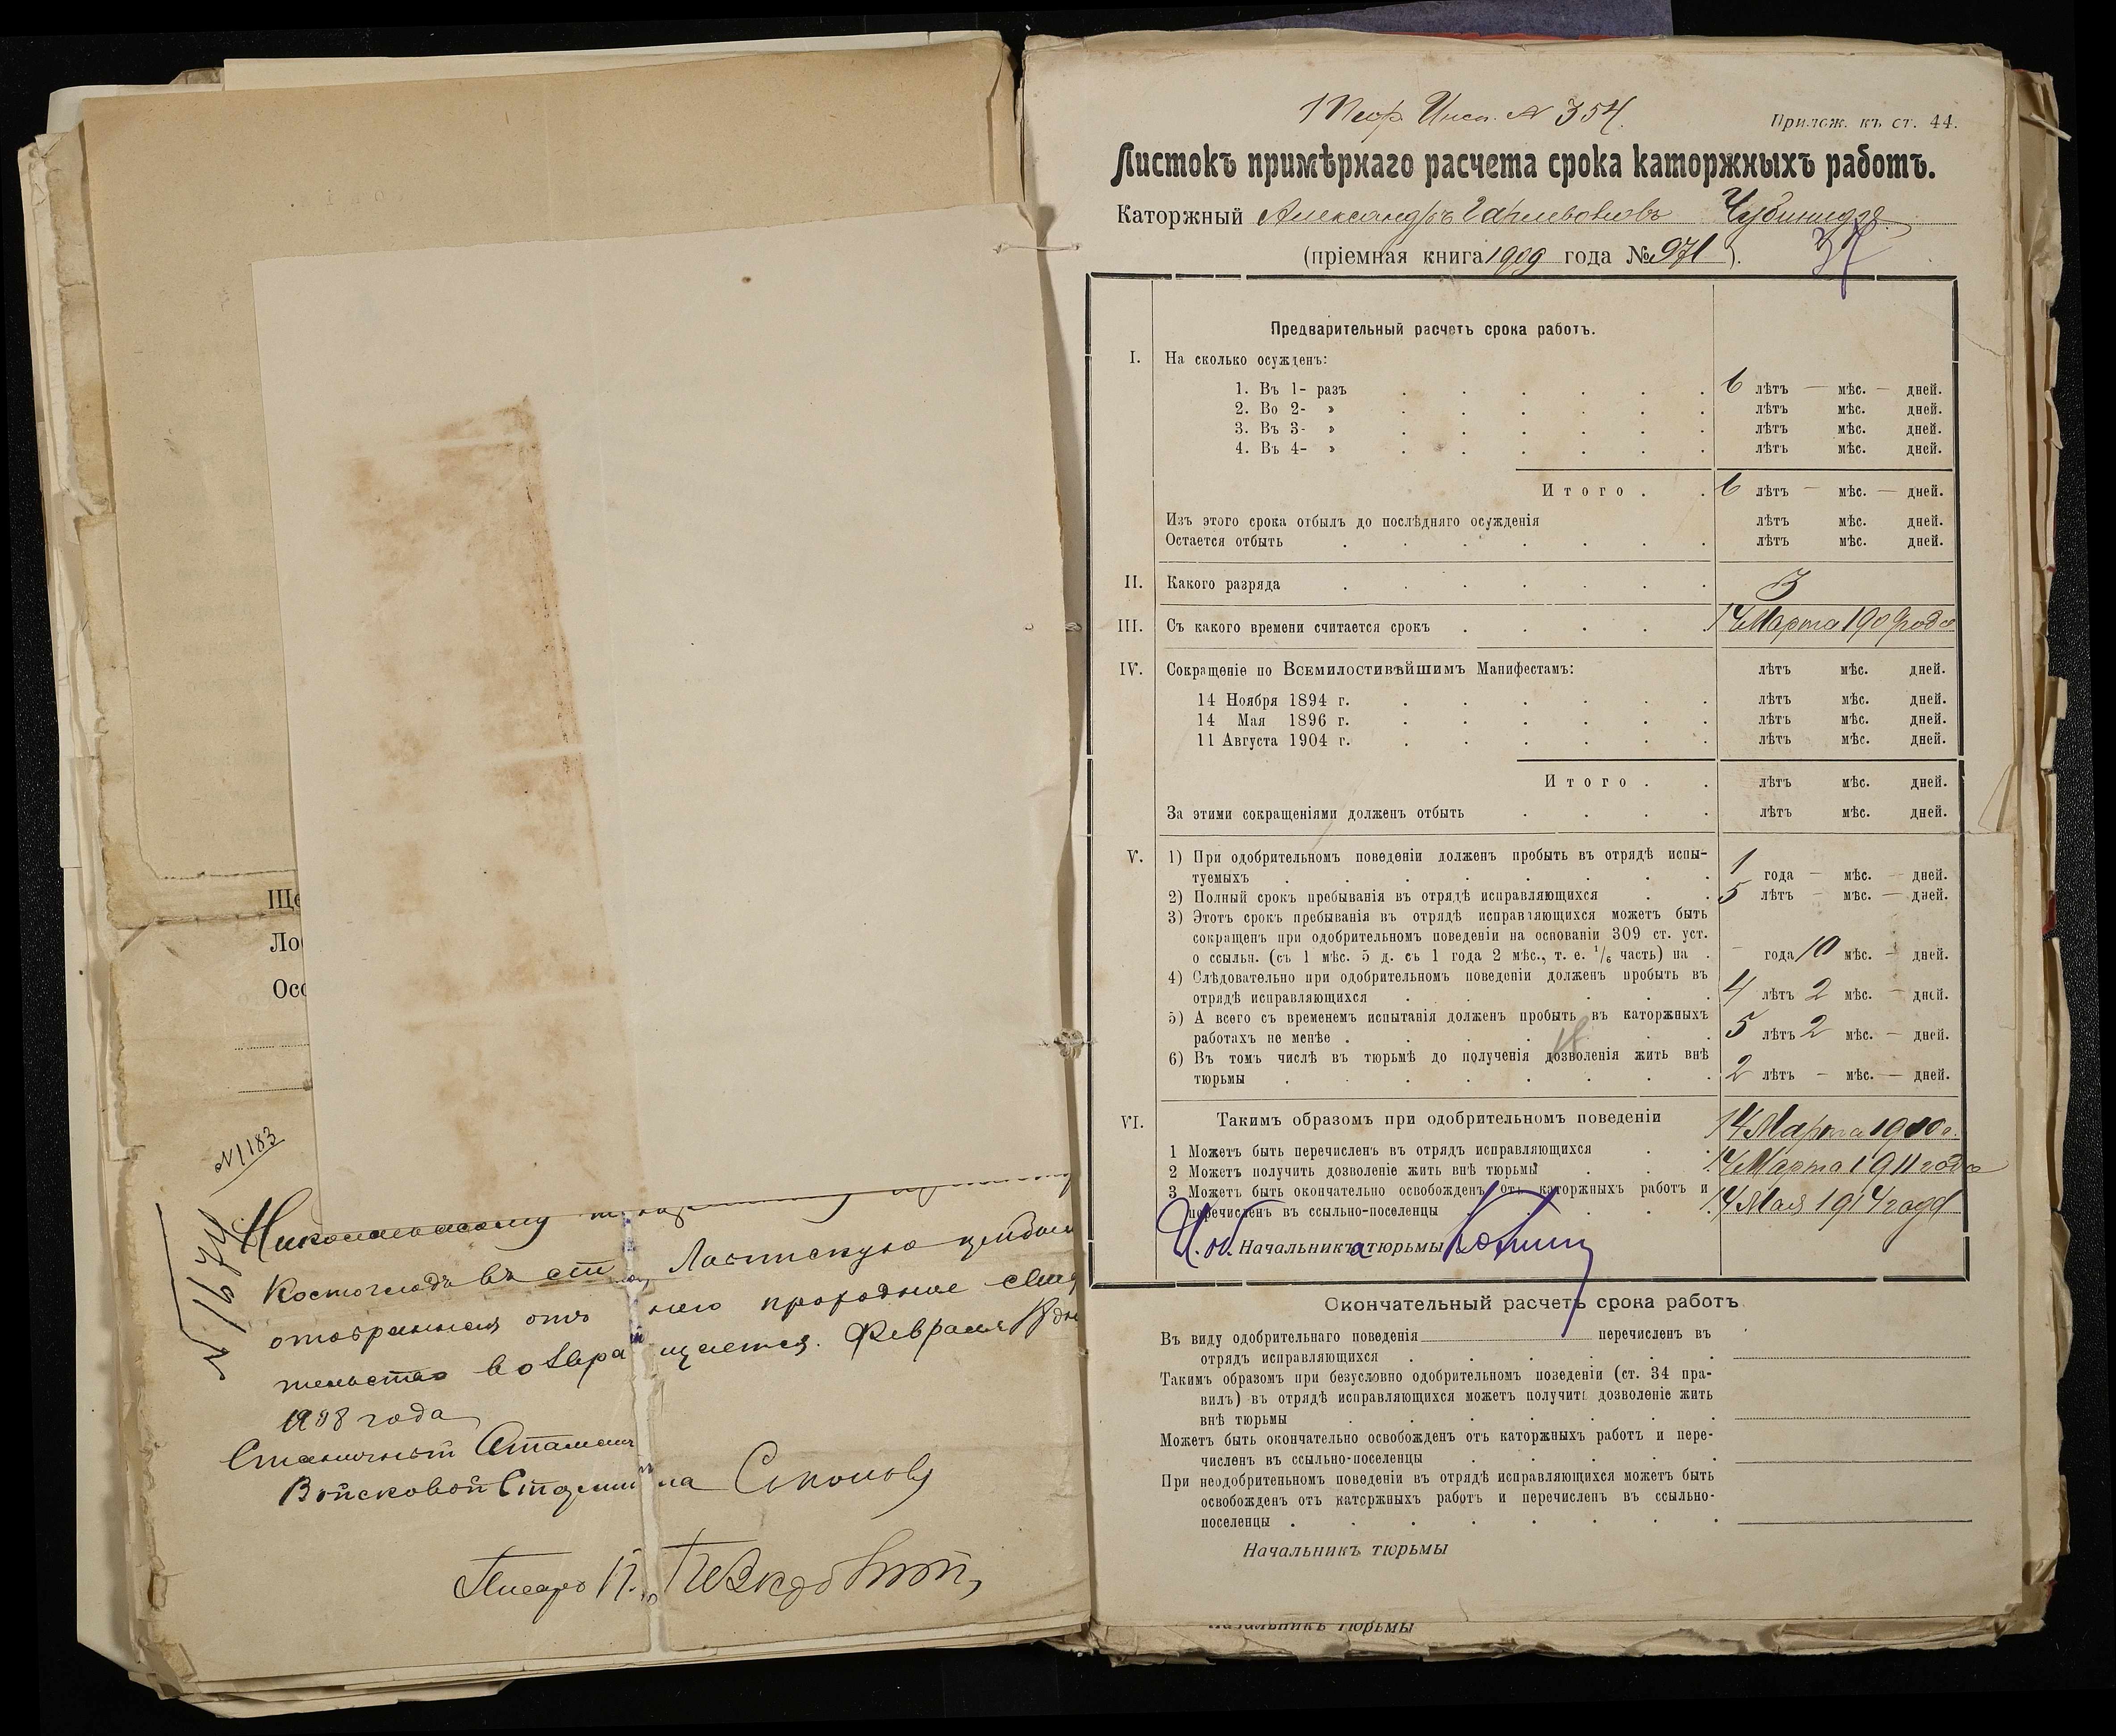 Ще
Ло
Осо
N 1183
N 1674
Никольскому
въ ст
отобранная отъ него проходное свид
тельство возвращается. Февраля дня
1908 года
Станичный Атаманъ
Войсковой Старшина
Писарь
N 354.
Прилож. къ ст. 44.
Листокъ примѣрнаго расчета срока каторжныхъ работъ.
Каторжный Александръ Чубинидзе
(пріемная книга 1909 года № 971).
37
Предварительный расчетъ срока работъ.
I. На сколько осужденъ:
1. Въ 1- разъ 6 лѣтъ — мѣс. — дней.
2. Во 2- » лѣтъ мѣс. дней.
3. Въ 3- » лѣтъ мѣс. дней.
4. Въ 4- » лѣтъ мѣс. дней.
Итого . . 6 лѣтъ — мѣс. — дней.
Изъ этого срока отбылъ до послѣдняго осужденія лѣтъ мѣс. дней.
Остается отбыть лѣтъ мѣс. дней.
II. Какого разряда 3
III. Съ какого времени считается срокъ 14 Марта 1909 года
IV. Сокращеніе по Всемилостивѣйшимъ Манифестамъ: лѣтъ мѣс. дней.
14 Ноября 1894 г. лѣтъ мѣс. дней.
14 Мая 1896 г. лѣтъ мѣс. дней.
11 Августа 1904 г. лѣтъ мѣс. дней.
Итого . . лѣтъ мѣс. дней.
За этими сокращеніями долженъ отбыть лѣтъ мѣс. дней.
V. 1) При одобрительномъ поведеніи долженъ пробыть въ отрядѣ испы-
туемыхъ 1 года — мѣс. — дней.
2) Полный срокъ пребыванія въ отрядѣ исправляющихся 5 лѣтъ — мѣс. — дней.
3) Этотъ срокъ пребыванія въ отрядѣ исправляющихся можетъ быть
сокращенъ при одобрительномъ поведеніи на основаніи 309 ст. уст.
о ссыльн. (съ 1 мѣс. 5 д. съ 1 года 2 мѣс., т. е. 1/6 часть) на . — года 10 мѣс. — дней.
4) Слѣдовательно при одобрительномъ поведеніи долженъ пробыть въ
отрядѣ исправляющихся 4 лѣтъ 2 мѣс. — дней.
5) А всего съ временемъ испытанія долженъ пробыть въ каторжныхъ
работахъ не менѣе . 5 лѣтъ 2 мѣс. — дней.
6) Въ томъ числѣ въ тюрьмѣ до полученія дозволенія жить внѣ
тюрьмы 2 лѣтъ — мѣс. — дней.
VI. Такимъ образомъ при одобрительномъ поведеніи
1 Можетъ быть перечисленъ въ отрядъ исправляющихся 14 Марта 1910 г.
2 Можетъ получить дозволеніе жить внѣ тюрьмы 14 Марта 1911 года
3 Можетъ быть окончательно освобожденъ отъ каторжныхъ работъ и
перечисленъ въ ссыльно-поселенцы 14 Мая 1914 года
И. об. Начальника тюрьмы
Окончательный расчетъ срока работъ
Въ виду одобрительнаго поведенія перечисленъ въ
отрядъ исправляющихся
Такимъ образомъ при безусловно одобрительномъ поведеніи (ст. 34 пра-
вилъ) въ отрядѣ исправляющихся можетъ получить дозволеніе жить
внѣ тюрьмы
Можетъ быть окончательно освобожденъ отъ каторжныхъ работъ и пере-
численъ въ ссыльно-поселенцы
При неодобрительномъ поведеніи въ отрядѣ исправляющихся можетъ быть
освобожденъ отъ каторжныхъ работъ и перечисленъ въ ссыльно-
поселенцы .
Начальникъ тюрьмы
Начальникъ тюрьмы